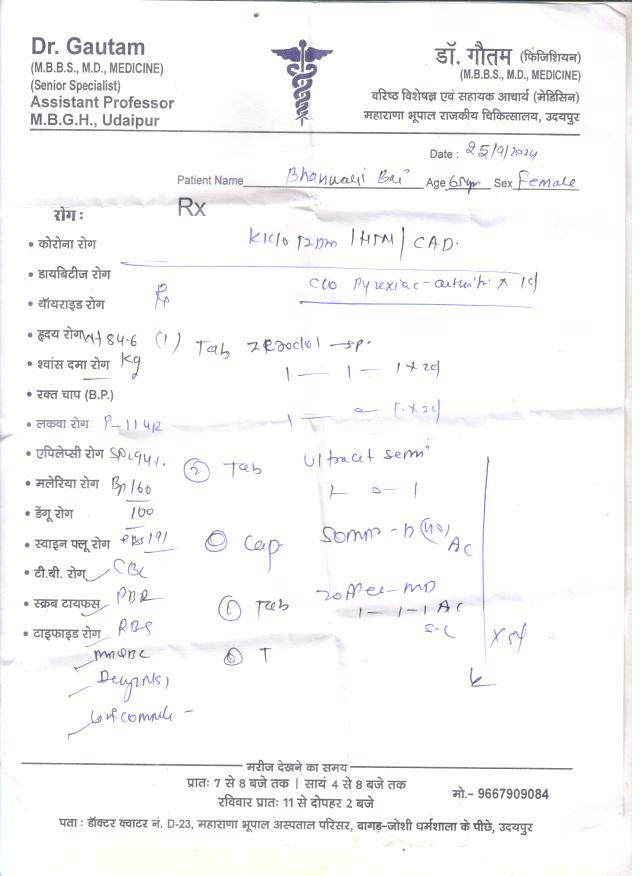 Dr. Gautam
(M.B.B.S., M.D., MEDICINE)
(Senior Specialist)
Assistant Professor
M.B.G.H., Udaipur
डॉ. गौतम (फिजिशियन)
(M.B.B.S., M.D., MEDICINE)
वरिष्ठ विशेषज्ञ एवं सहायक आचार्य (मेडिसिन)
महाराणा भूपाल राजकीय चिकित्सालय, उदयपुर
Date : 25/9/2024
Patient Name Bhanwari Bai Age 65yr Sex Female
Rx
रोग :
• कोरोना रोग K/c/o T2DM / HTN / CAD.
• डायबिटीज रोग
c/o Pyrexia
• थॉयराइड रोग
• हृदय रोग wt 84.6 (1) Tab -sp.
• श्वांस दमा रोग Kg 1 — 1 — 1 x 2d
• रक्त चाप (B.P.)
• लकवा रोग P-114 1 — 0 — 1 x 2d
• एपिलेप्सी रोग SPO2 94%. (2) Tab Ultracet semi
• मलेरिया रोग Bp 160 1 — 0 — 1
• डेंगू रोग 100
• स्वाइन फ्लू रोग RBS 191 Cap (40) AC
• टी.बी. रोग CBC
• स्क्रब टायफस Tab -MD
1 - 1 - 1 AC
• टाइफाइड रोग RBS x 5d
T
मरीज देखने का समय
प्रातः 7 से 8 बजे तक | सायं 4 से 8 बजे तक
रविवार प्रातः 11 से दोपहर 2 बजे
मो.- 9667909084
पता : डॉक्टर क्वाटर नं. D-23, महाराणा भूपाल अस्पताल परिसर, बागड़-जोशी धर्मशाला के पीछे, उदयपुर